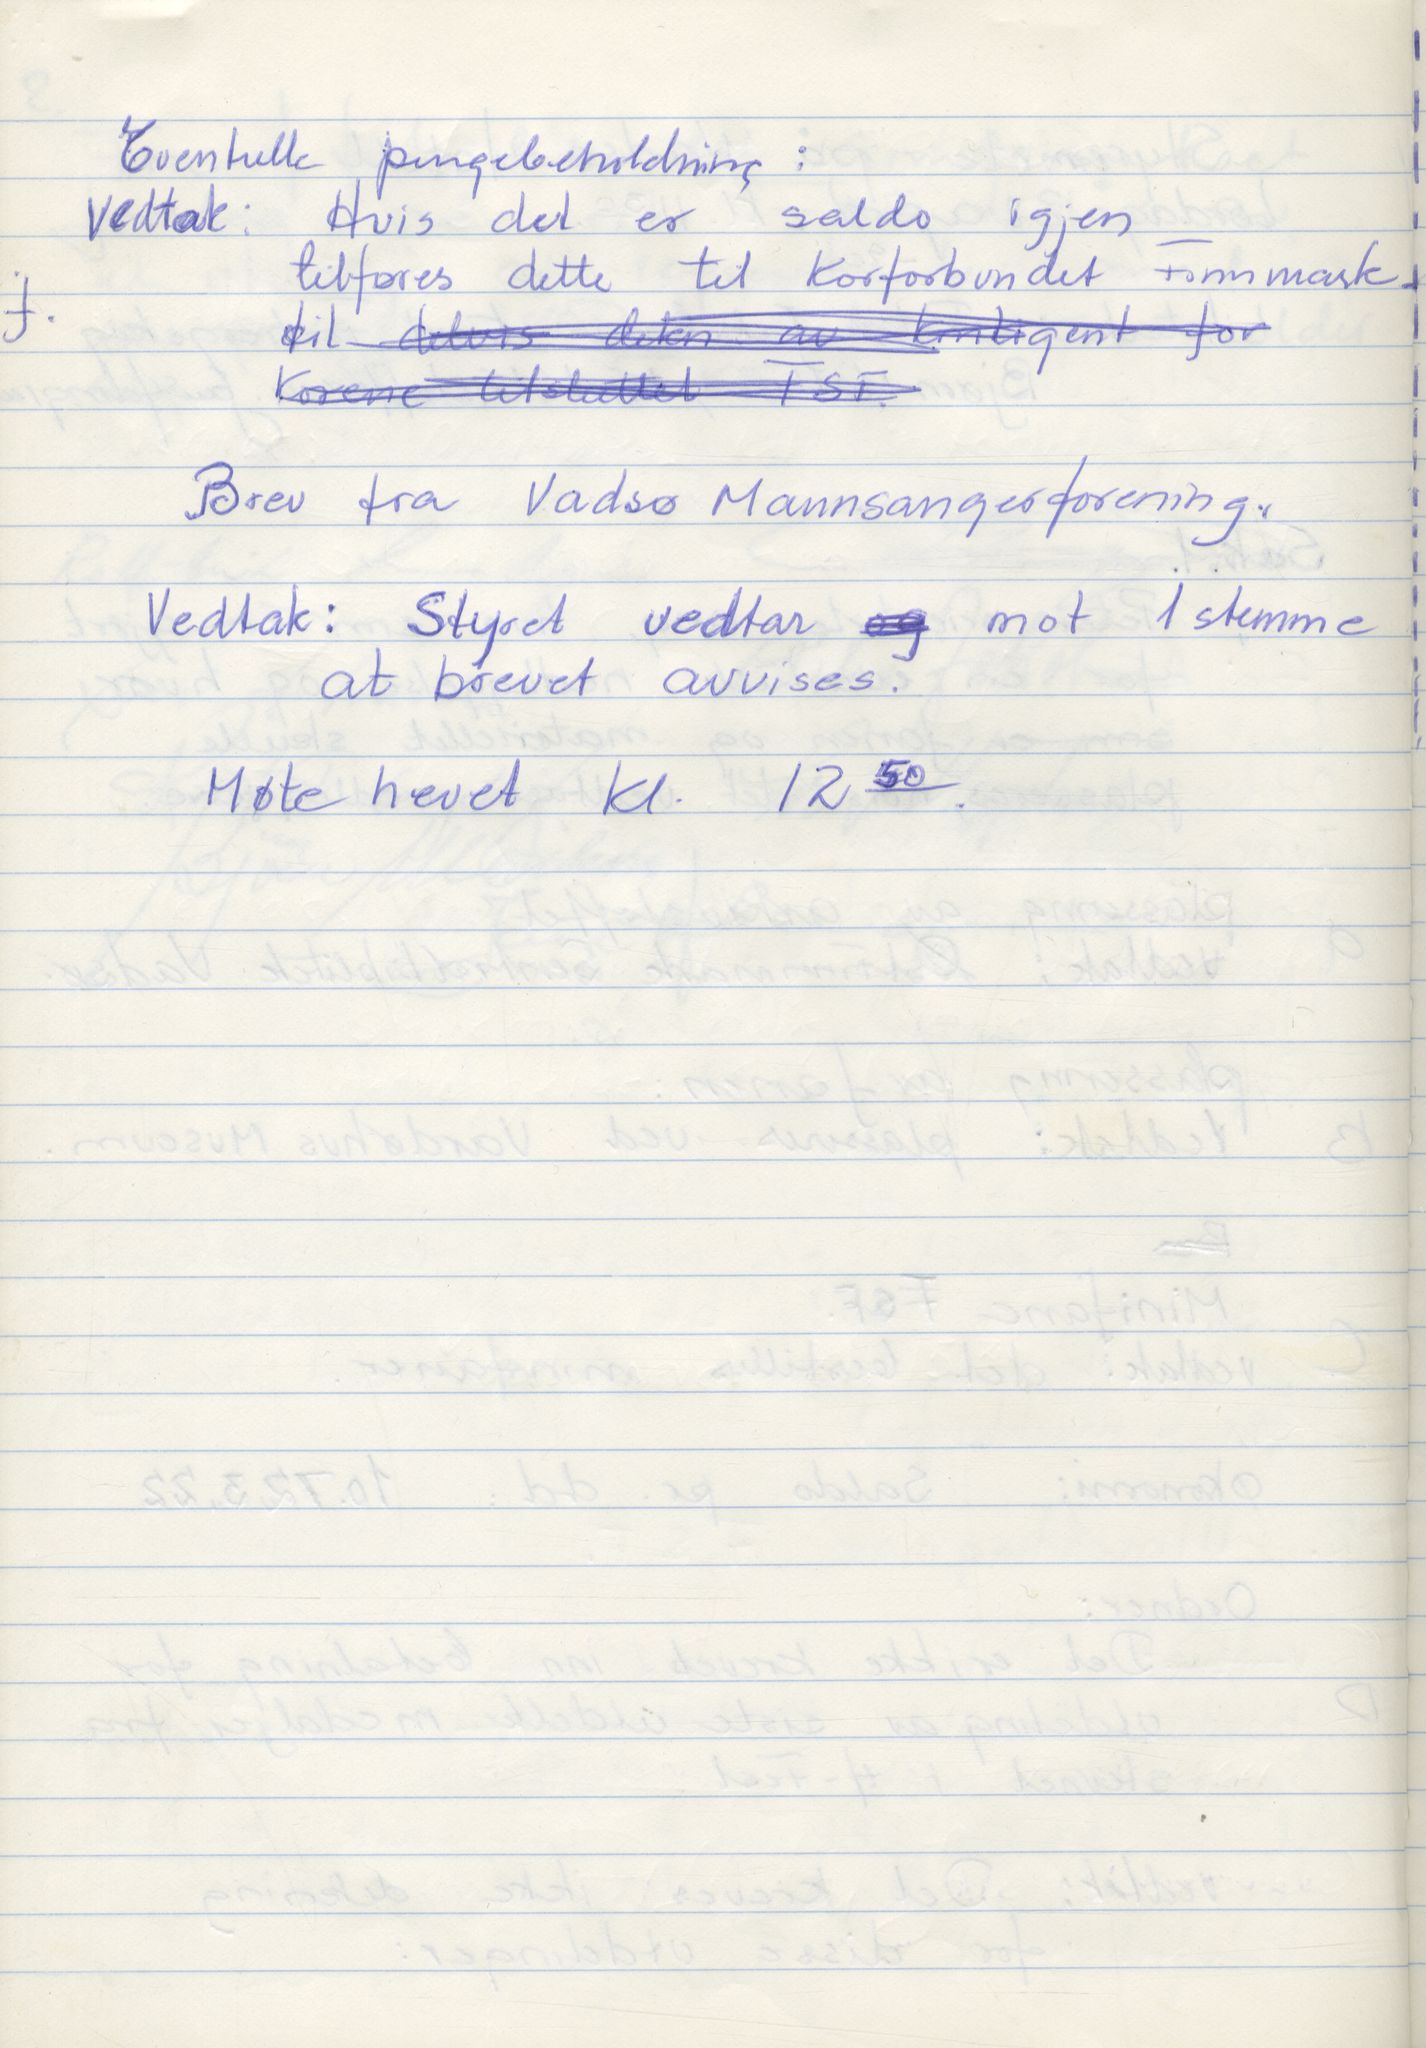 Eventuelle pengebeholdning:
Vedtak: Hvis det er saldo igjen
f. tilføres dette til Korforbundet Finnmark.
til delvis dekn av kontigent for
Korene tilsluttet FSF.
Brev fra Vadsø Mannsangerforening.
Vedtak: Styret vedtar og mot 1 stemme
at brevet avvises.
Møte hevet kl. 12 50.